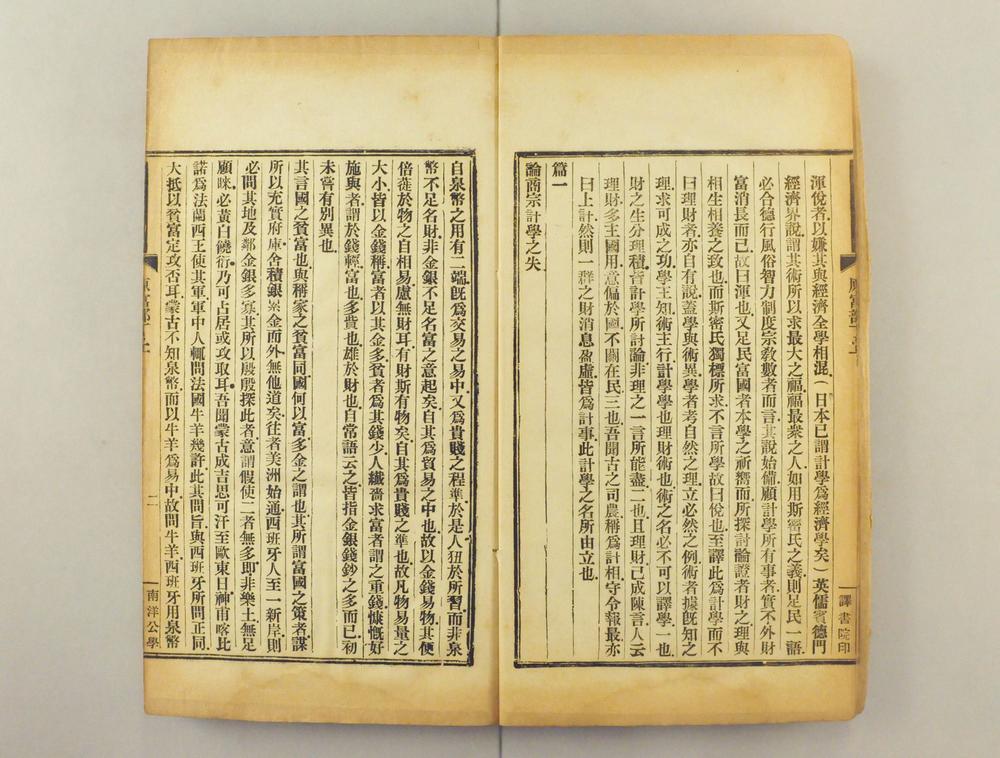 渾侻者以嫌其與經濟全學相混(日本已謂計學爲經濟學矣)英儒賓德門
經濟界說謂其術所以求最大之福福最衆之人如用斯密氏之義則足民一語
必合德行風俗智力制度宗敎數者而言其說始備顧計學所有事者實不外財
富消長而已故曰渾也又足民富國者本學之祈嚮而所探討論證者財之理與
相生相養之致也而斯密氏獨標所求不言所學故曰侻也至譯此爲計學而不
曰理財者亦自有說蓋學與術異學者考自然之理立必然之例術者據旣知之
理求可成之功學主知術主行計學學也理財術也術之名必不可以譯學一也
財之生分理積皆計學所討論非理之一言所能盡二也且理財已成陳言人云
理財多主國用意偏於國不關在民三也吾聞古之司農稱爲計相守令報最亦
曰上計然則一群之財消息盈虛皆爲計事此計學之名所由立也
篇一
論商宗計學之失
譯書院印
自泉幣之用有二端旣爲交易之易中又爲貴賤之程準於是人狃於所習而非泉
幣不足名財非金銀不足名富之意起矣自其爲貿易之中也故以金錢易物其便
倍蓰於物之自相易慮無財耳有財斯有物矣自其爲貴賤之準也故凡物易量之
大小皆以金錢稱富者以其金多貧者爲其錢少人纖嗇求富者謂之重錢慷慨好
施與者謂於錢輕富也多貲也雄於財也自常語云之皆指金銀錢鈔之多而已初
未嘗有別異也
其言國之貧富也與稱家之貧富同國何以富多金之謂也其所謂富國之策者謀
所以充實府庫舍積銀累金而外無他道矣往者美洲始通西班牙人至一新岸則
必問其地及鄰金銀多寡其所以殷殷探此者意謂假使二者無多即非樂土無足
顧眯必黃白饒衍乃可占居或攻取耳吾聞蒙古成吉思可汗至歐東日神甫喀比
諾爲法蘭西王使其軍軍中人輒問法國牛羊幾許此其問旨與西班牙所問正同
大抵以貧富定攻否耳蒙古不知泉幣而以牛羊爲易中故問牛羊西班牙用泉幣
二
南洋公學